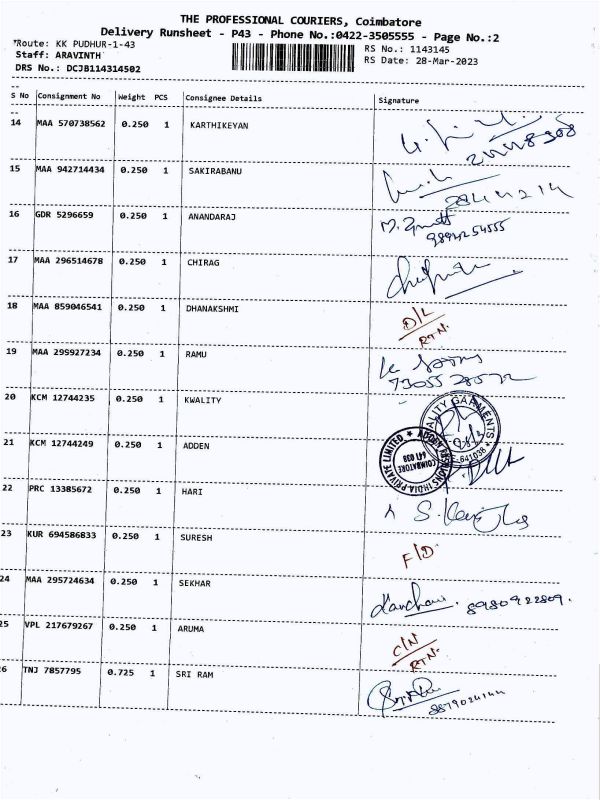 THE PROFESSIONAL COURIERS, Coimbatore
Delivery Runsheet - P43 - Phone No.:0422-3505555 - Page No.:2
*Route: KK PUDHUR-1-43
RS No.: 1143145
Staff: ARAVINTH
RS Date: 28-Mar-2023
DRS No.: DCJB114314502
S No Consignment No Weight PCS Consignee Details Signature
14 MAA 570738562 0.250 1 KARTHIKEYAN
15 MAA 942714434 0.250 1 SAKIRABANU
16 GDR 5296659 0.250 1 ANANDARAJ
9894254555
17 MAA 296514678 0.250 1 CHIRAG
18 MAA 859046541 0.250 1 DHANAKSHMI D/L
RTN.
19 MAA 299927234 0.250 1 RAMU
20 KCM 12744235 0.250 1 KWALITY
21 KCM 12744249 0.250 1 ADDEN
COIMBATORE
641 038
22 PRC 13385672 0.250 1 HARI
23 KUR 694586833 0.250 1 SURESH F/D
24 MAA 295724634 0.250 1 SEKHAR 8980922809.
25 VPL 217679267 0.250 1 ARUMA C/N
RTN.
26 TNJ 7857795 0.725 1 SRI RAM